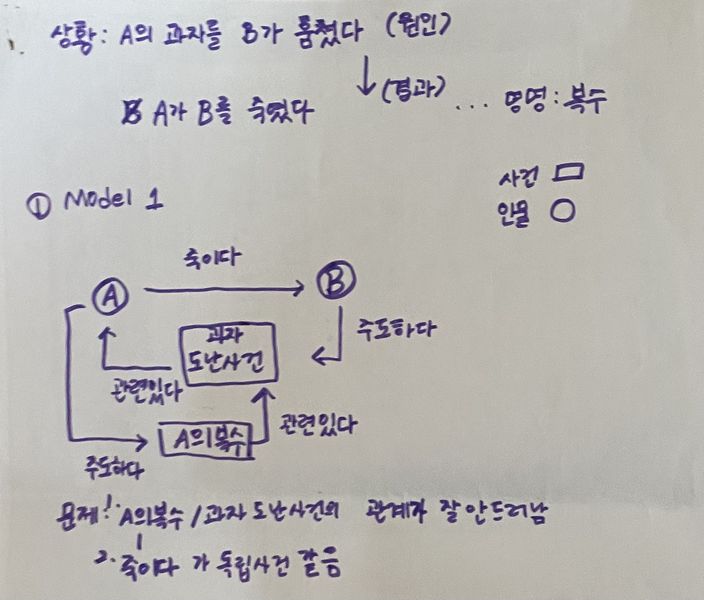 상황: A의 과자를 B가 훔쳤다 (원인)
(결과)
A가 B를 죽였다
... 명명: 복수
사건
인물
① Model 1
죽이다
A
B
주도하다
과자
도난사건
관련있다
A의복수
관련있다
주도하다
문제! 1. A의복수 / 과자도난사건의 관계가 잘안드러남
2. 죽이다 가 독립사건 같음